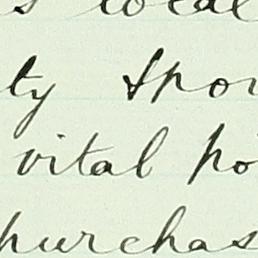 s local
ty spo
vital po
purchas